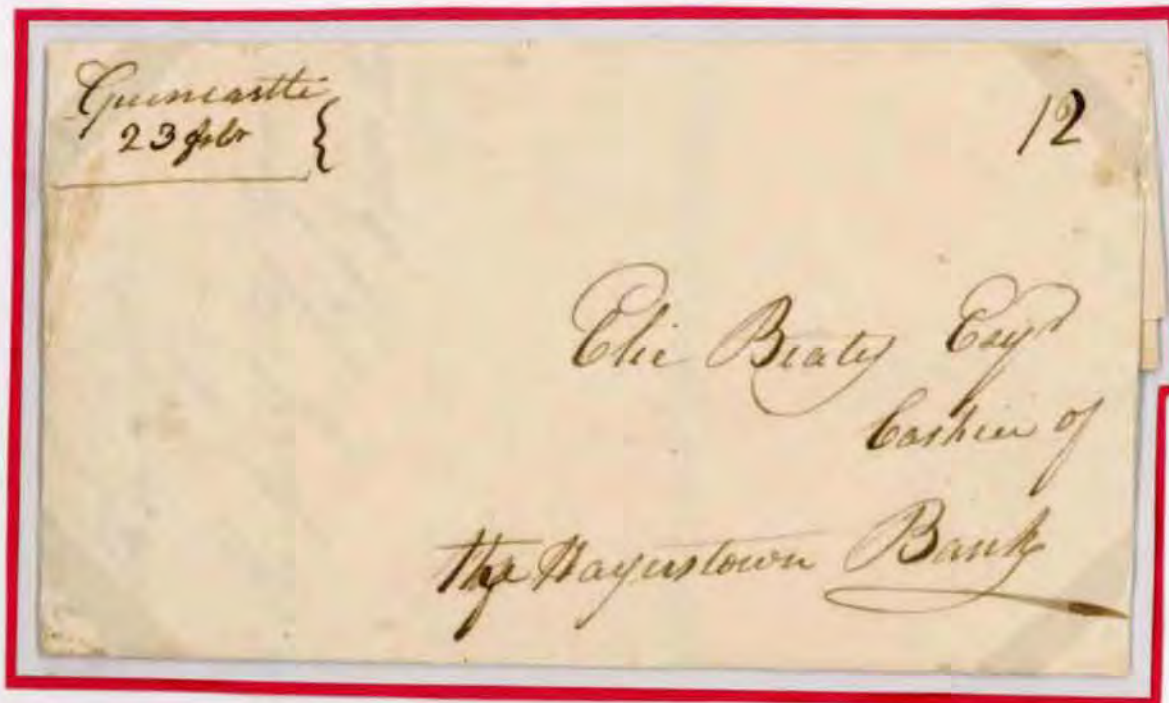 Greencastle
23 febr
12
Elie Beatty Esqr
Cashier of
the Hagerstown Bank